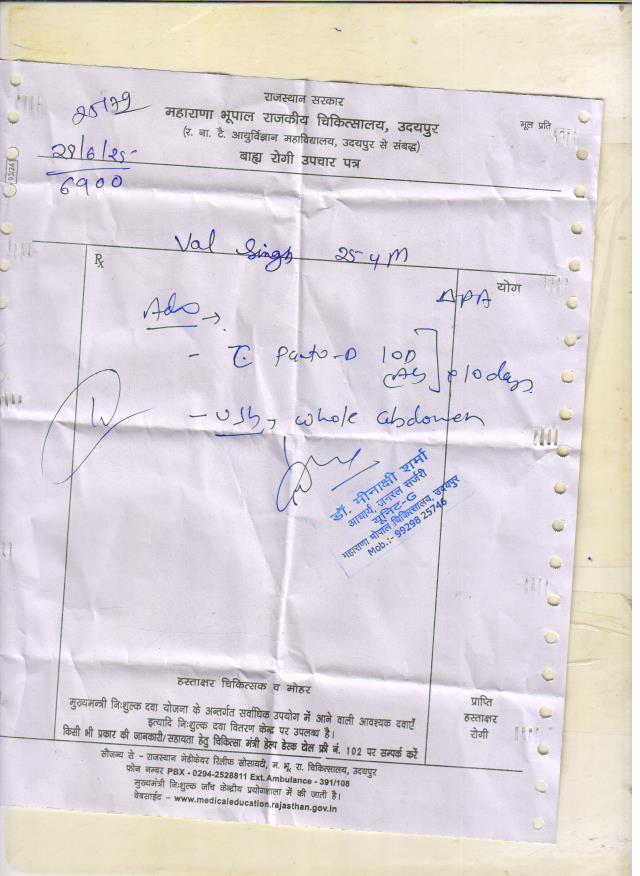 25179
राजस्थान सरकार
महाराणा भूपाल राजकीय चिकित्सालय, उदयपुर
मूल प्रति
(र. ना. टै. आयुर्विज्ञान महाविद्यालय, उदयपुर से संबद्ध)
28/6/25
बाह्य रोगी उपचार पत्र
6900
Val Singh 25 y M
Rx
योग
APA
Adv →
- T. Panto-D 1OD
x 10 days
- USG → whole abdomen
डॉ. मीनाक्षी शर्मा
आचार्य, जनरल सर्जरी
यूनिट-G
महाराणा भोपाल चिकित्सालय, उदयपुर
Mob.:- 99298 25746
हस्ताक्षर चिकित्सक व मोहर
मुख्यमंत्री निःशुल्क दवा योजना के अन्तर्गत सर्वाधिक उपयोग में आने वाली आवश्यक दवाएँ
इत्यादि निःशुल्क दवा वितरण केन्द्र पर उपलब्ध है।
किसी भी प्रकार की जानकारी/सहायता हेतु चिकित्सा मंत्री हेल्प डेस्क टोल फ्री नं. 102 पर सम्पर्क करें
प्राप्ति
हस्ताक्षर
रोगी
सौजन्य से - राजस्थान मेडीकेयर रिलीफ सोसायटी, म. भू. रा. चिकित्सालय, उदयपुर
फोन नम्बर PBX - 0294-2528811 Ext. Ambulance - 391/108
मुख्यमंत्री निःशुल्क जाँच केन्द्रीय प्रयोगशाला में की जाती है।
वेबसाईट - www.medicaleducation.rajasthan.gov.in